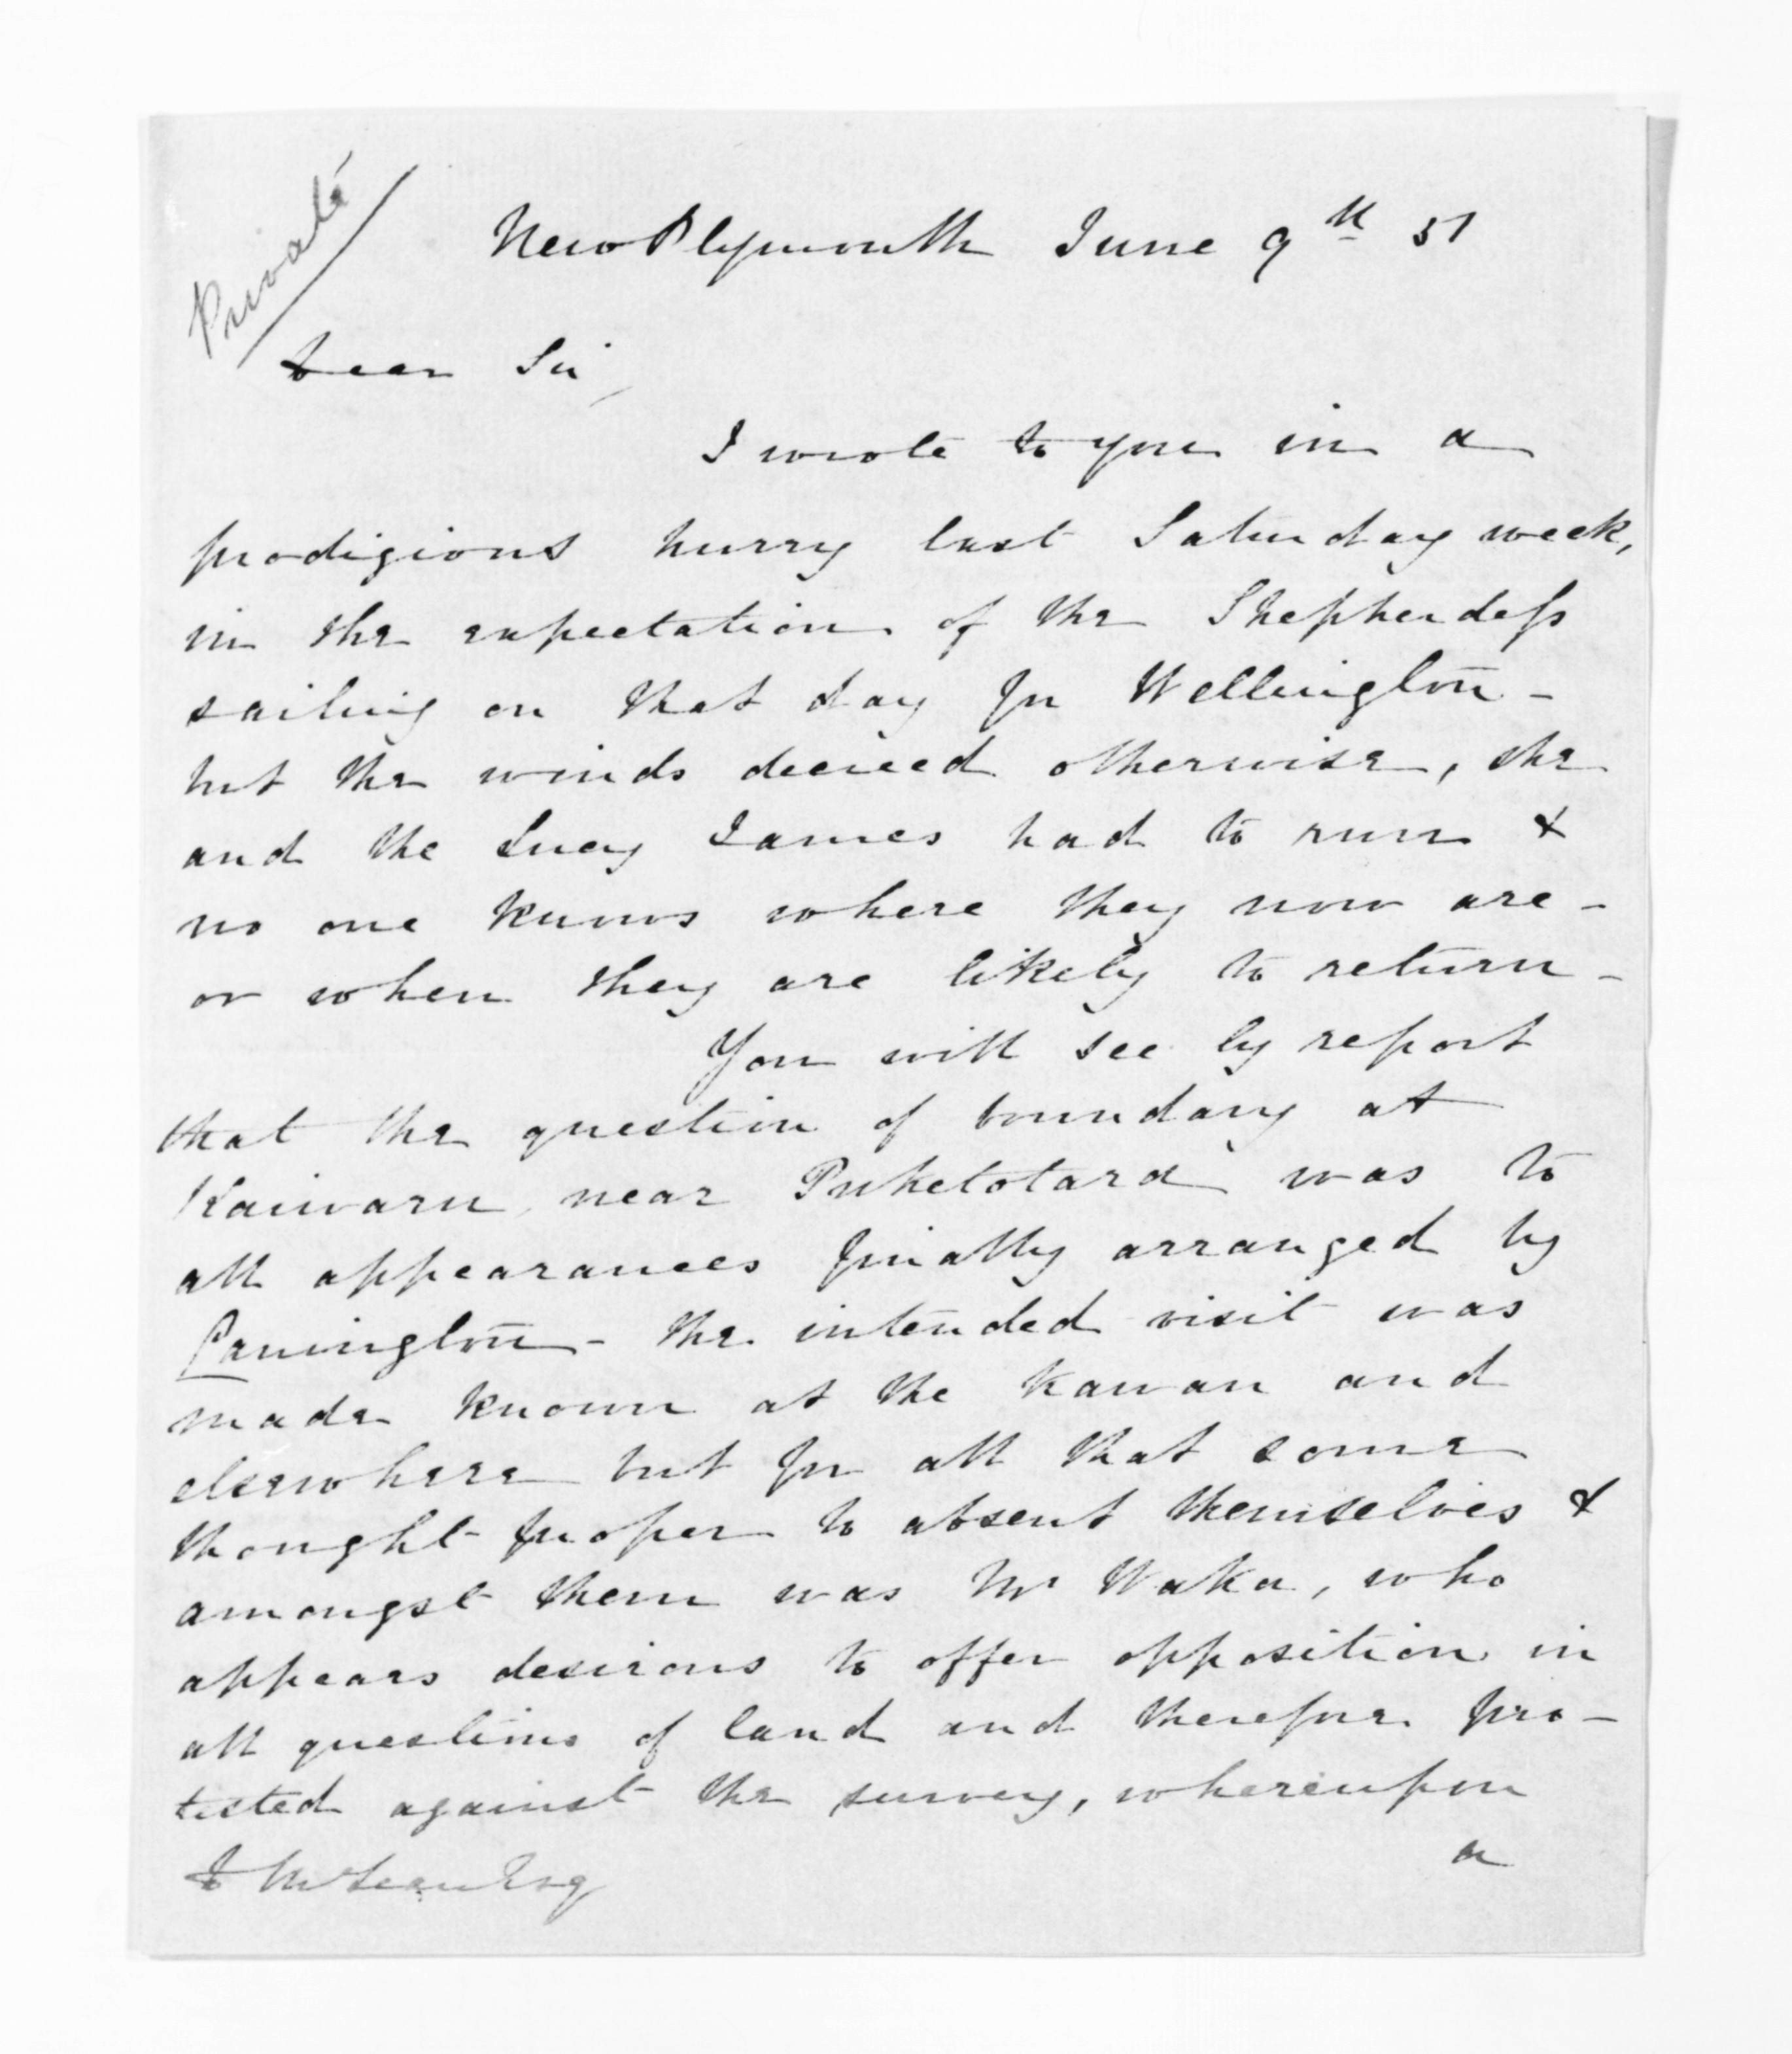 Private
New Plymouth June 9th 51
Dear Sir,
I wrote to you in a
prodigious hurry last Saturday week,
in the expectation of the Shepherdess
sailing on that day for Wellington -
but the winds decreed otherwise, she
and the Lucy James had to run &
no one knows where they now are -
or when they are likely to return -
You will see by report
that the question of boundary at
Kaiwaru, near Puketotara was to
all appearances finally arranged by
Carrington - the intended visit was
made known at the Kawau and
elsewhere but for all that some
thought proper to absent themselves &
amongst them was Mr Waka, who
appears desirous to offer opposition in
all questions of land and therefore pro-
tested against the survey, whereupon
a
D McLean Esq